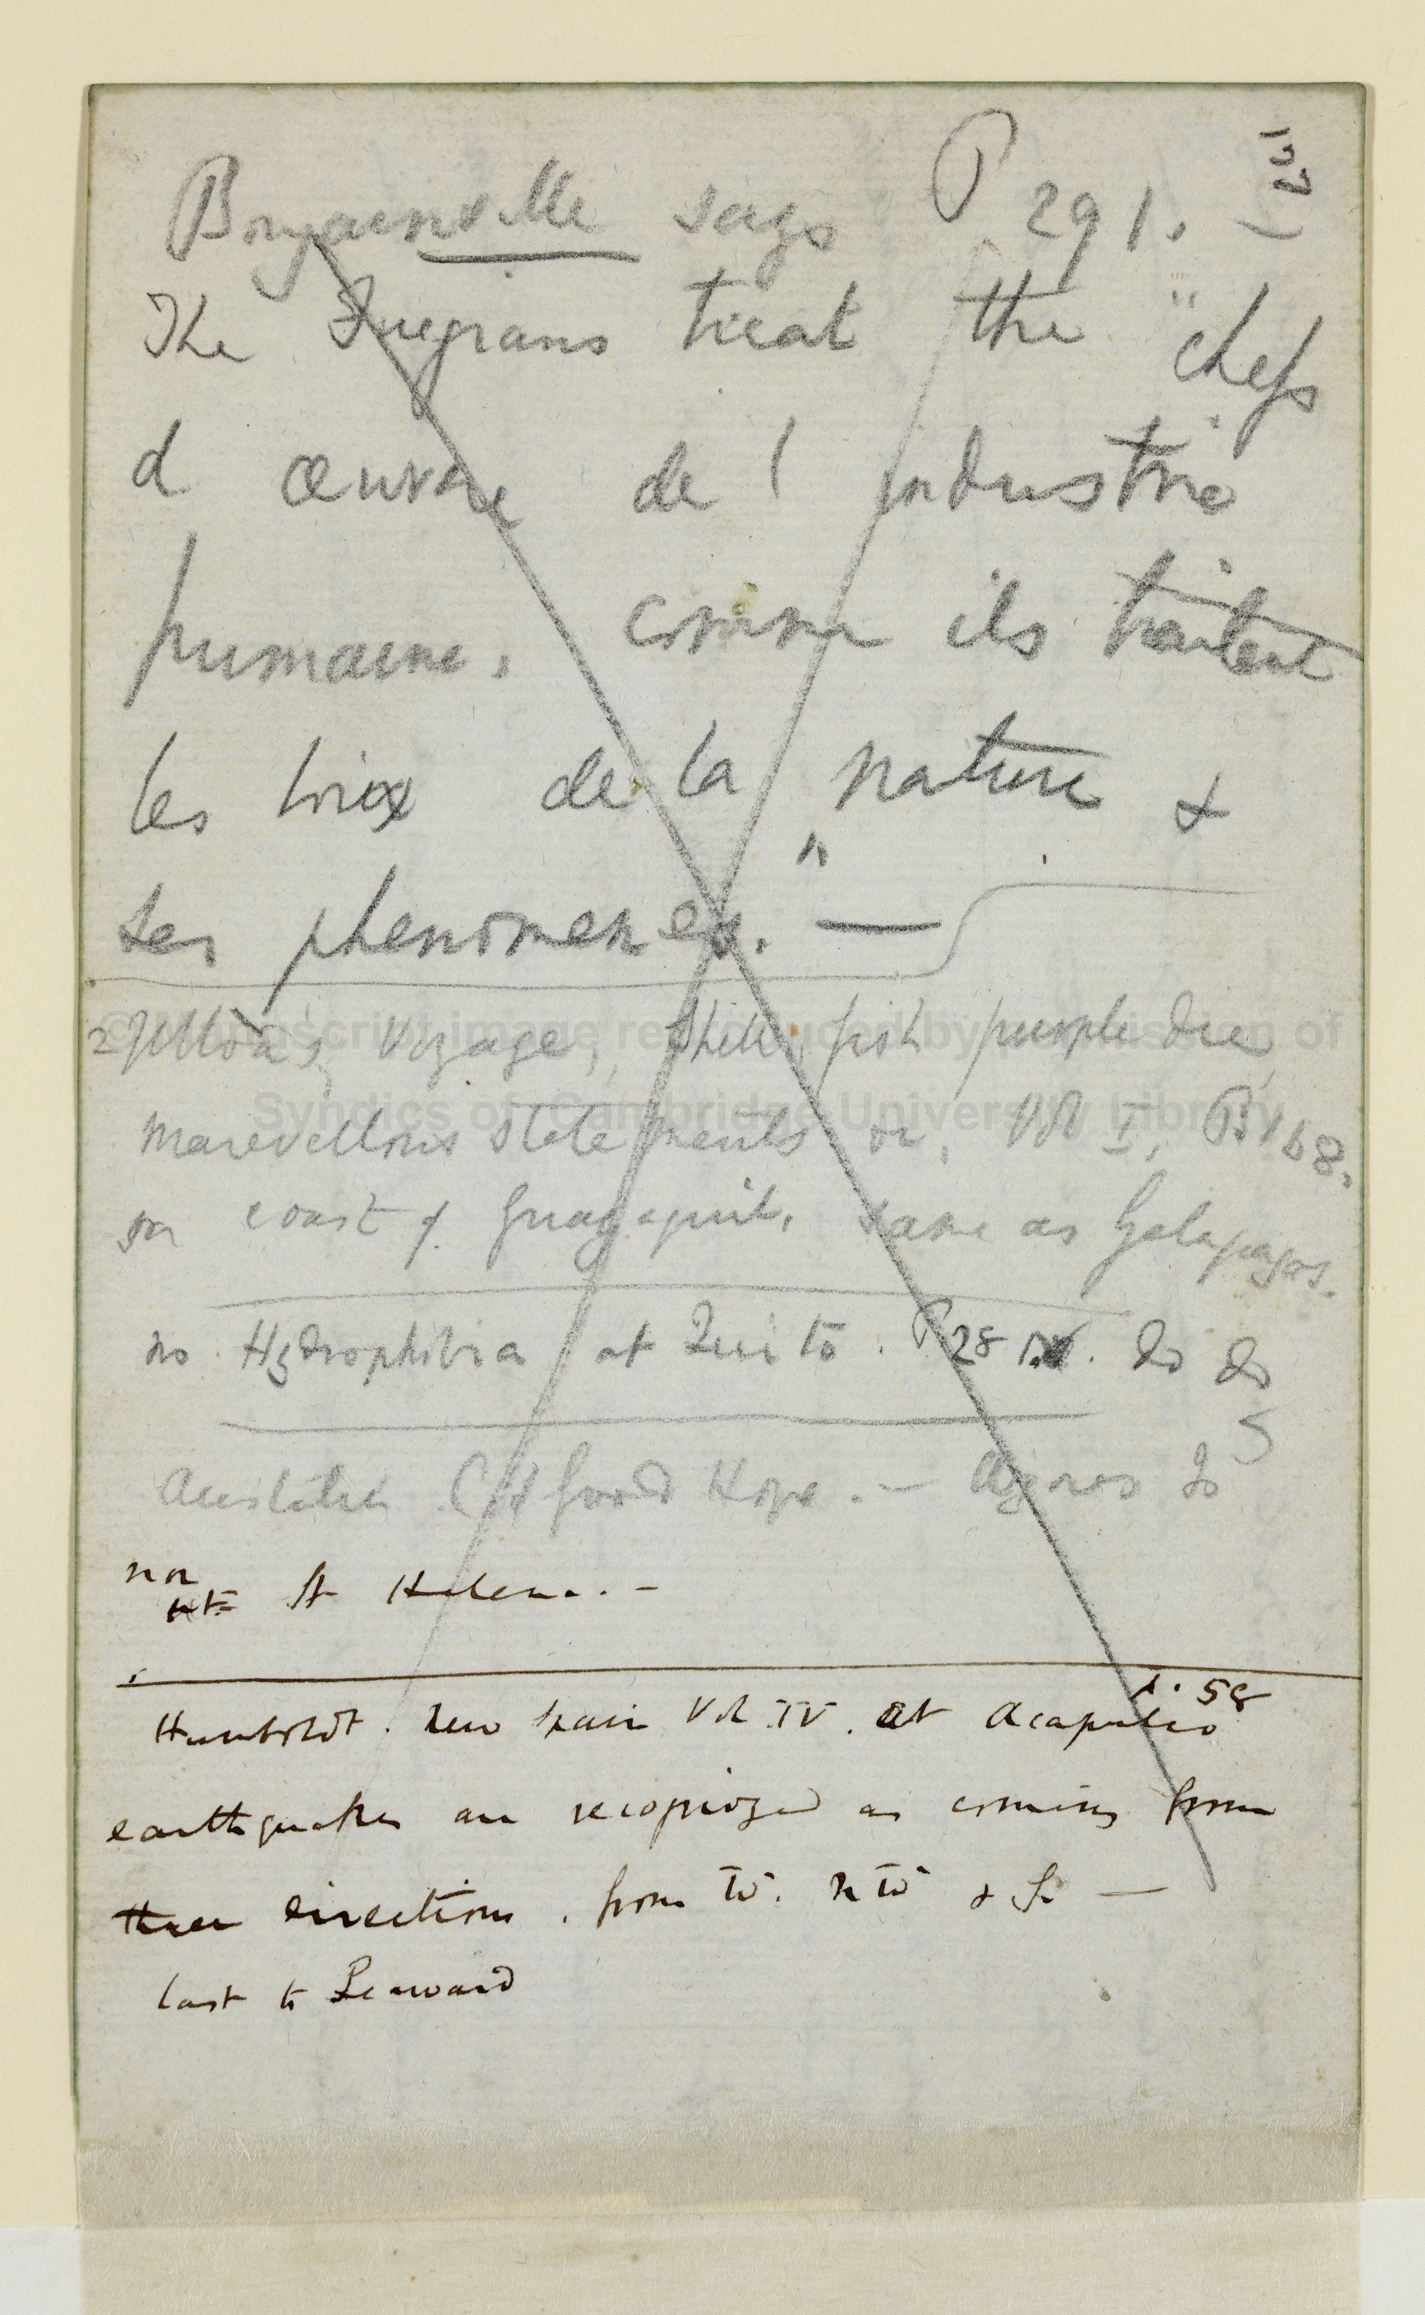 137
Bougainville says P 291. —
The Fuegians treat the "chefs
d œuvre de l industrie
humaine, comme ils traitent
les loix de la nature &
ses phenomenes." —
Ulloa's Voyage, shell fish purple die,
marvellous statements on, Vol I, P 168,
on coast of Guayaquil. same as Galapagos.
no Hydrophibia at Quito. P 28 do do
Australia C of Good Hope. — Azores Is
nor
St Helena. —
P. 58
Humboldt. New Spain Vol. IV. at Acapulco
earthquakes are recognized as coming from
three directions. from W. NW & S. —
last to Seaward
© Manuscript image reproduced by permission of
Syndics of Cambridge University Library